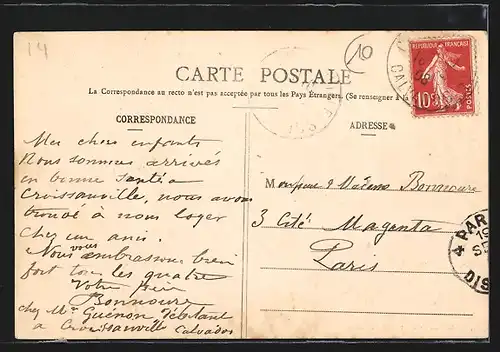 14
10
CARTE POSTALE
La Correspondance au recto n'est pas acceptée par tous les Pays Étrangers. (Se renseigner à la
CORRESPONDANCE
Mes chers enfants
Nous sommes arrivés
en bonne santé a
Croissanville, nous avons
trouvé à nous loger
chez un ami.
Nous vous embrassons bien
fort tous les quatre
Votre père
Bonnoure
chez Mr Guénon Débitant
a Croissanville Calvados
ADRESSE
Monsieur & Madame Bonnoure
3 Cité Magenta
Paris
RÉPUBLIQUE FRANÇAISE
10c
POSTES
CALV
PAR
DIS